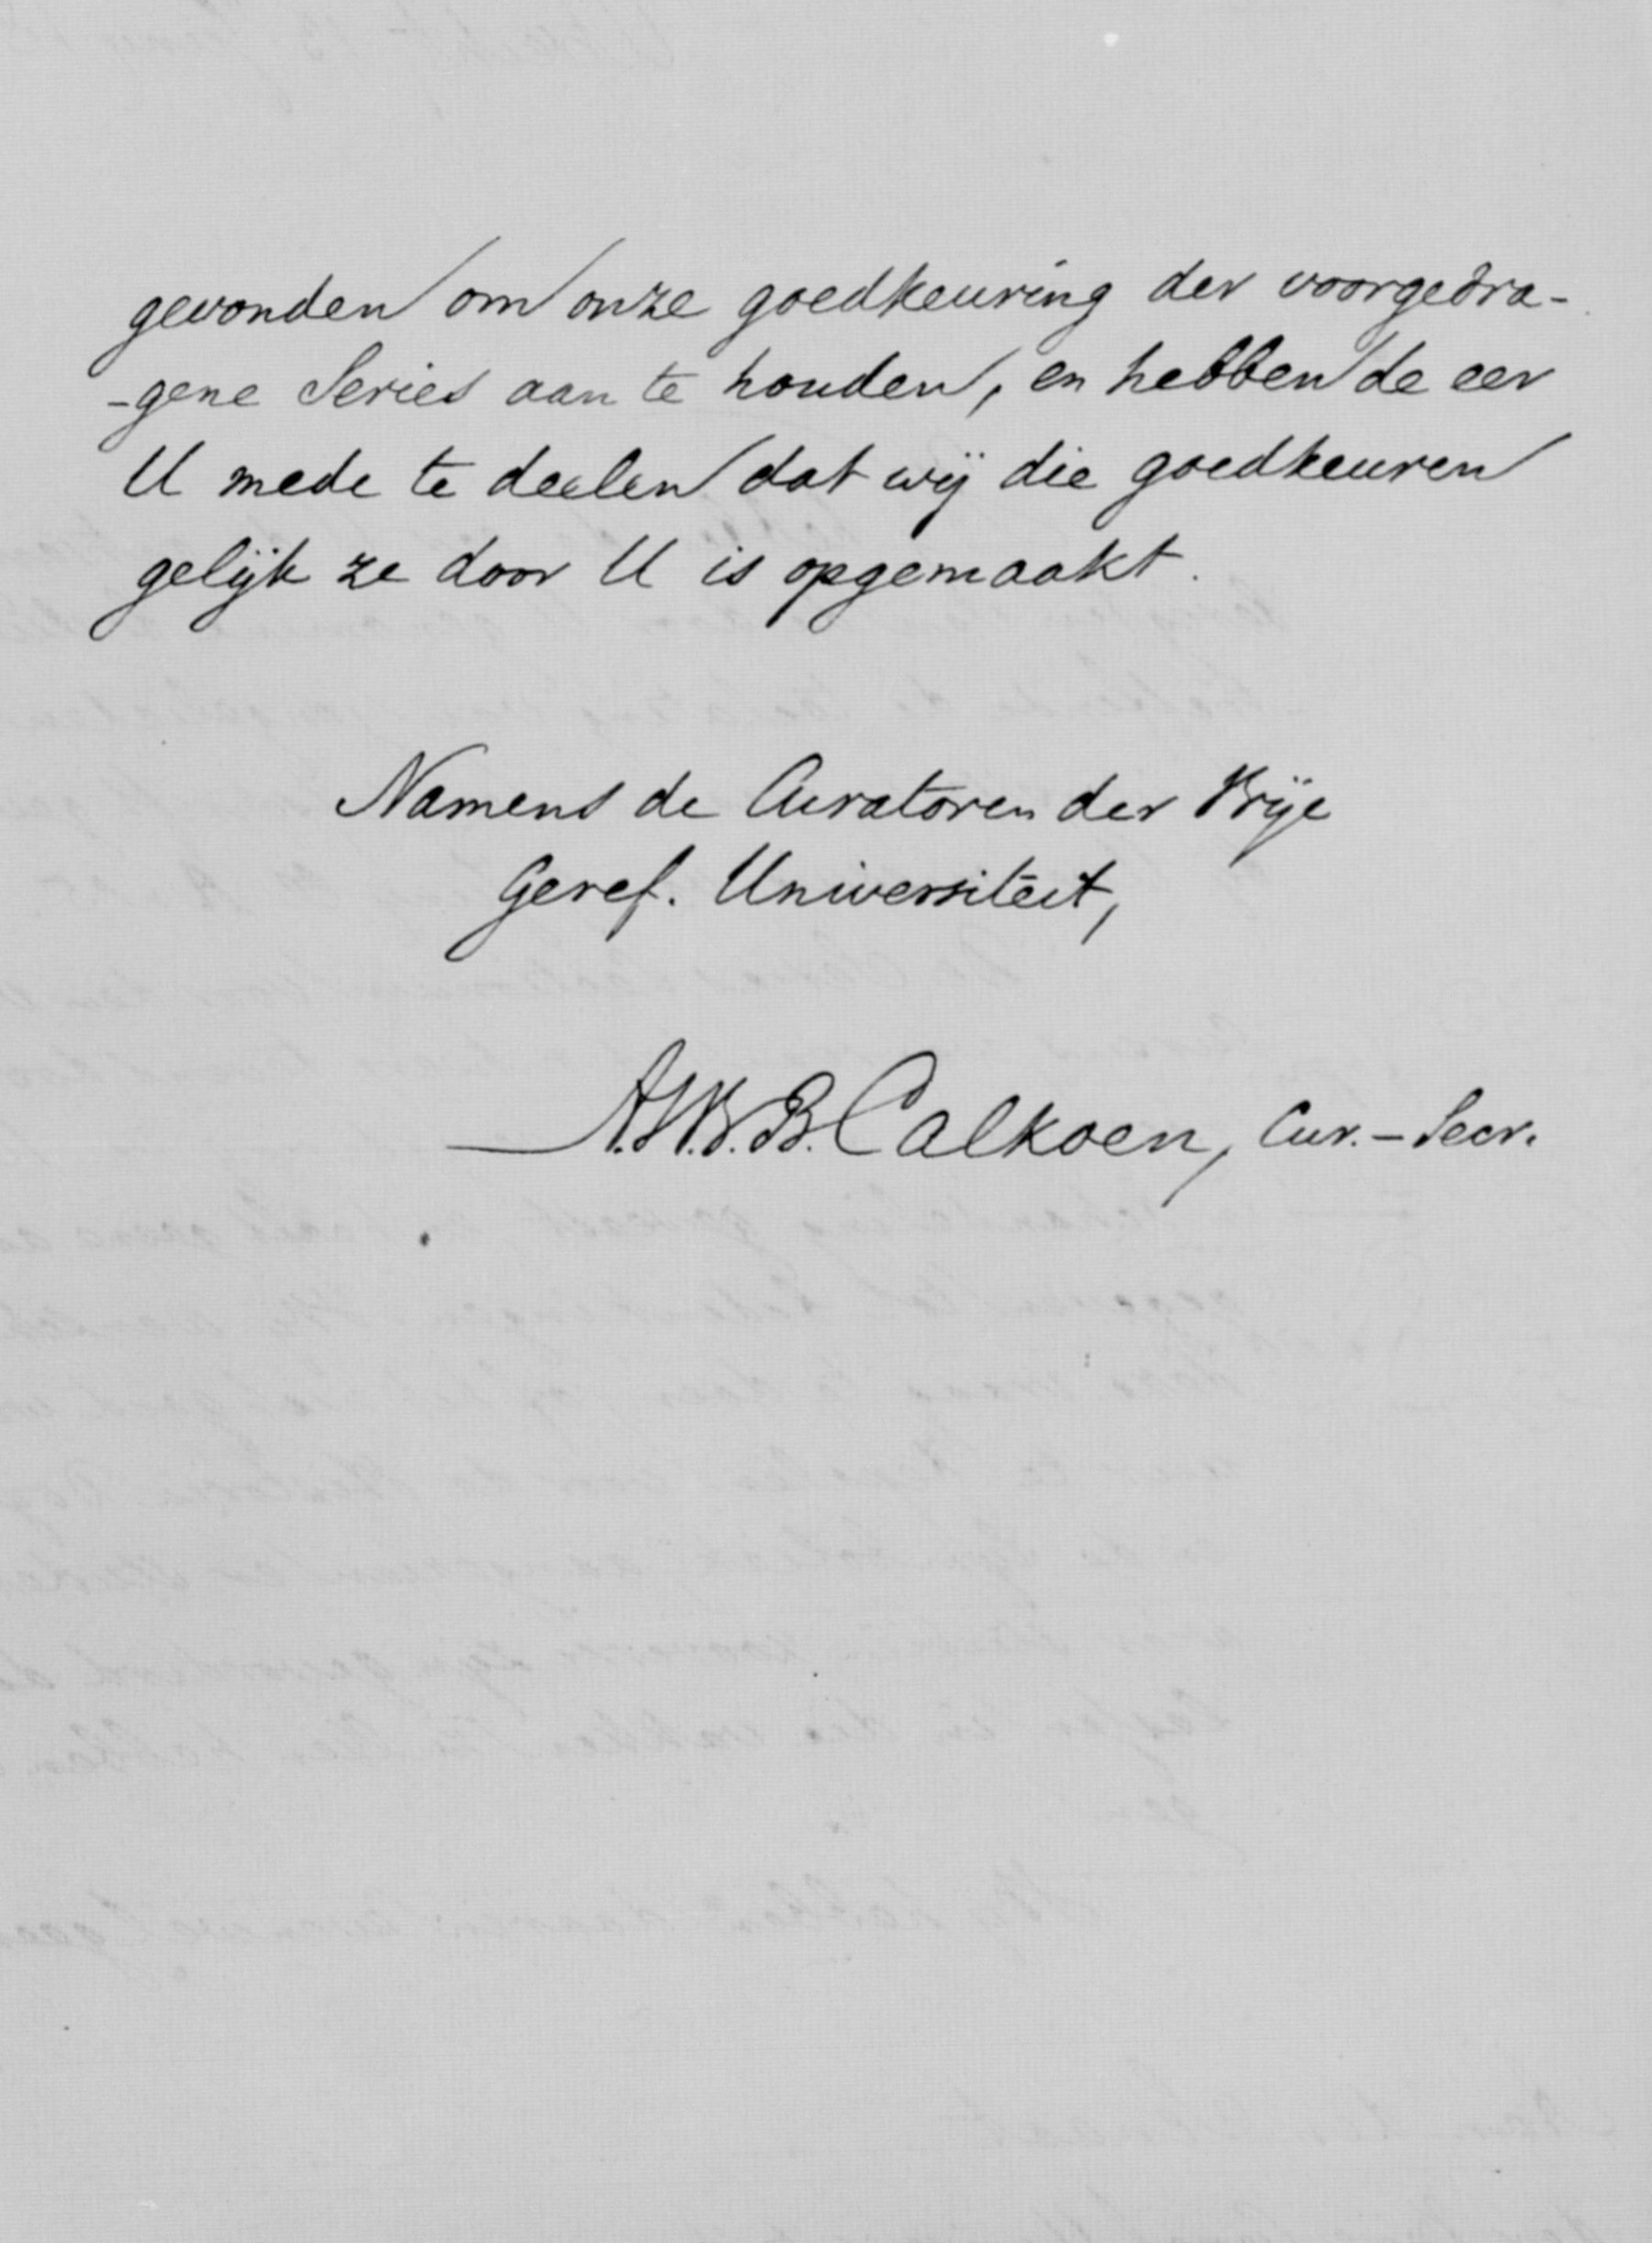 gevonden om onze goedkeuring der voorgedra-
-gene Series aan te houden, en hebben de eer
U mede te deelen dat wij die goedkeuren
gelijk ze door U is opgemaakt.
Namens de Curatoren der Vrije
Geref. Universiteit,
A.W.B.B. Calkoen, Cur.-Secr.